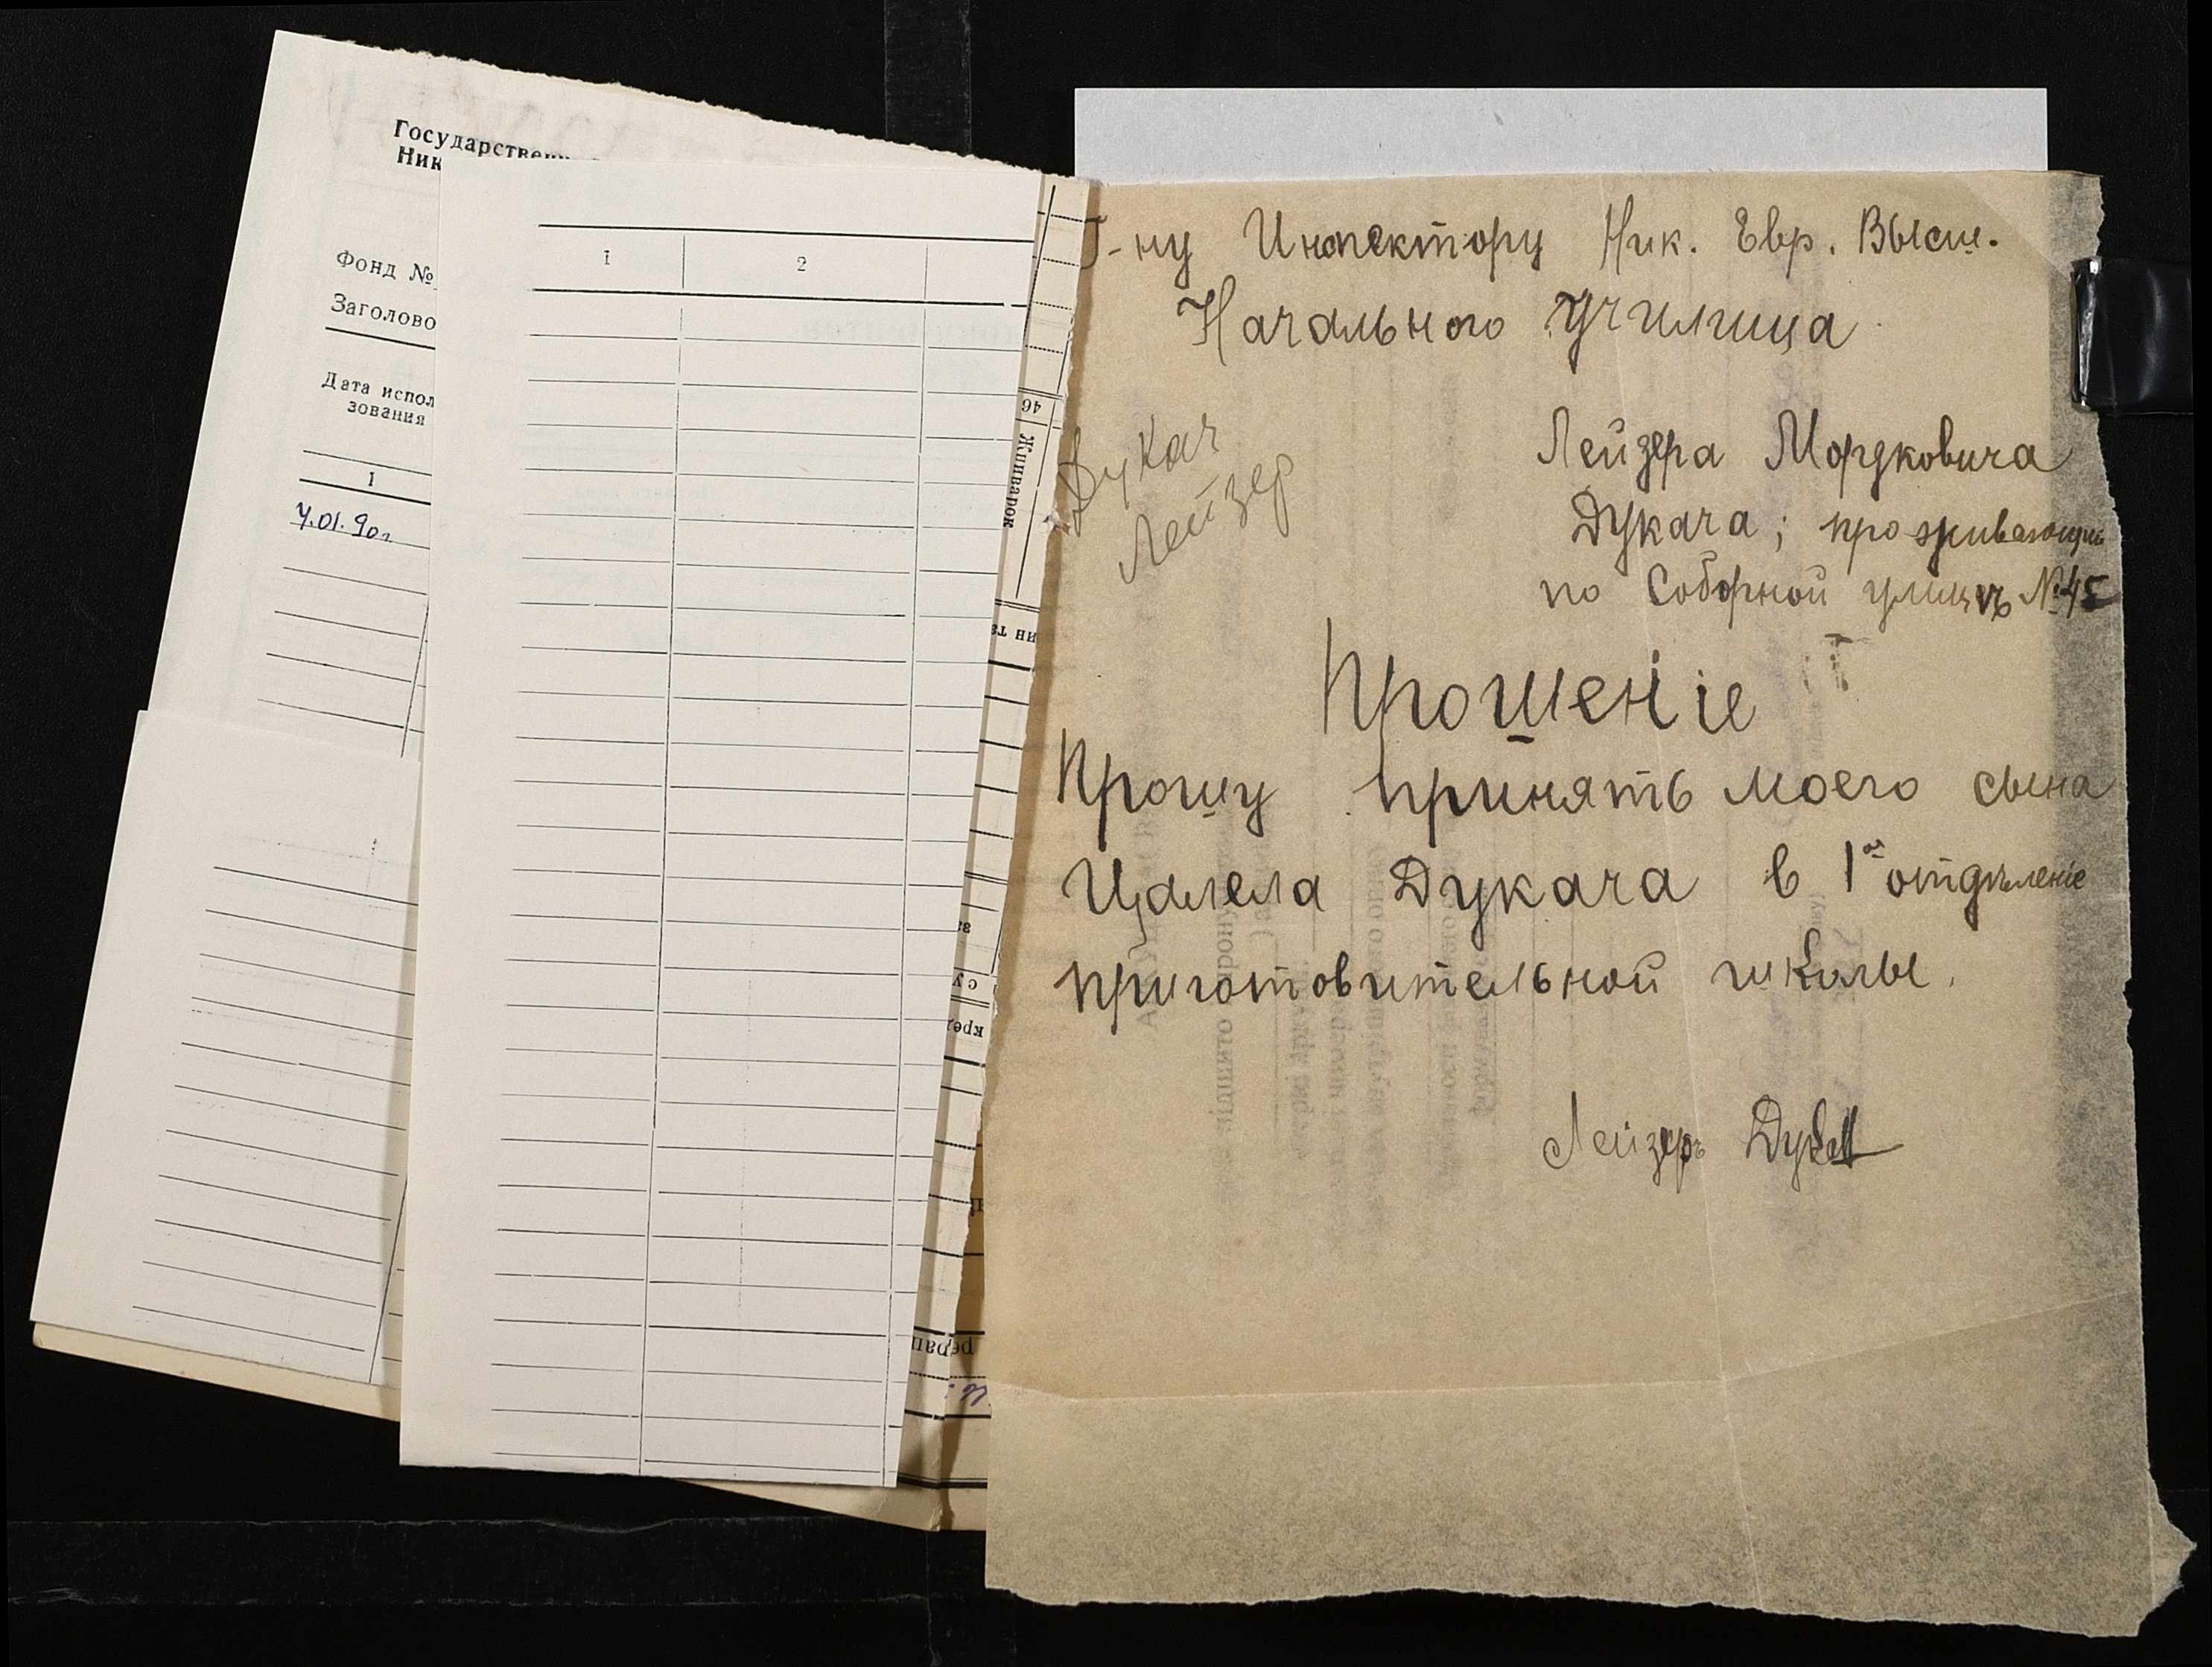 Государствен
Ник
Фонд №
Заголово
Дата исполь
зования
1
4.01.90г
1 2
46
Жниварок
ин та
су
кред
Г-ну Инспектору Ник. Евр. Высш.
Начального Училища
Дукач
Лейзер
Лейзера Мордковича
Дукача; проживающ
по Соборной улицѣ №45
Прошеніе
Прошу принять моего сына
Цалела Дукача в 1ое отдѣленіе
приготовительной школы.
Лейзеръ Дукач